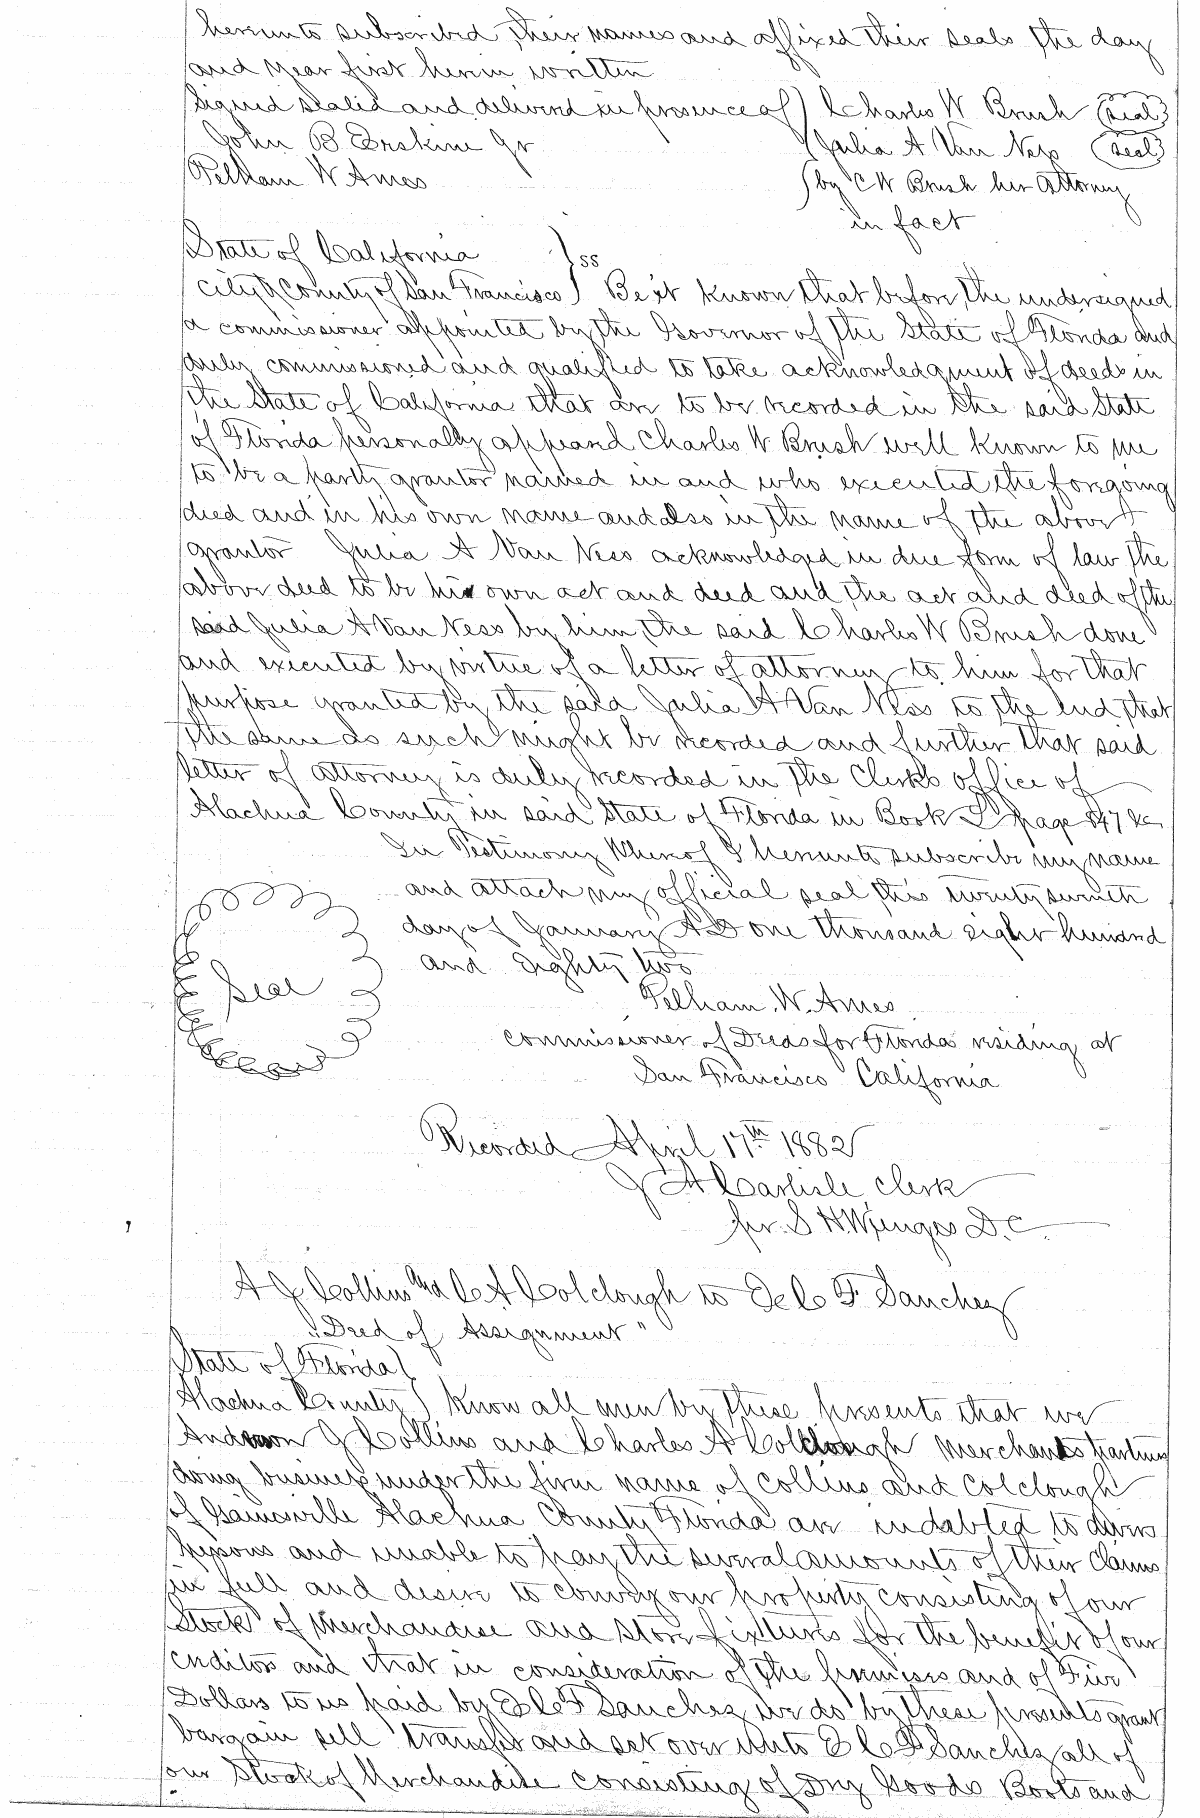 hereunto subscribed their names and affixed their seals the day
and year first herein written
Signed sealed and delivered in presence of } Charles W Brush (seal)
John B Erskine Jr { Julia A Van Ness (seal)
Pelham W Ames { by C W Brush her Attorney
in fact
State of California } ss
City & County of San Francisco } Be it known that before the undersigned
a commissioner appointed by the Governor of the State of Florida and
duly commissioned and qualified to take acknowledgment of deeds in
the State of California that are to be recorded in the said State
of Florida personally appeared Charles W Brush well known to me
to be a party grantor named in and who executed the foregoing
deed and in his own name and also in the name of the above
grantor Julia A Van Ness acknowledged in due form of law the
above deed to be his own act and deed and the act and deed of the
said Julia A Van Ness by him the said Charles W Brush done
and executed by virtue of a letter of attorney to him for that
purpose granted by the said Julia A Van Ness to the end that
the same as such might be recorded and further that said
letter of attorney is duly recorded in the Clerks office of
Alachua County in said State of Florida in Book L page 847 &c
In Testimony Whereof I hereunto subscribe my name
and attach my official seal this twenty seventh
day of January AD one thousand eight hundred
and Eighty two
Seal
Pelham. W. Ames
Commissioner of Deeds for Florida residing at
San Francisco California
Recorded April 17th 1882
J A Carlisle Clerk
per. S H Wienges D.C.
A J Collins and C A Colclough to E C F Sanchez
"Deed of Assignment"
State of Florida }
Alachua County } Know all men by these presents that we
Anderson J Collins and Charles A Colclough Merchants partners
doing business under the firm name of Collins and Colclough
of Gainesville Alachua County Florida are indebted to divers
persons and unable to pay the several amounts of their claims
in full and desire to convey our property consisting of our
Stock of Merchandise and store fixtures for the benefit of our
creditors and that in consideration of the premises and of Five
Dollars to us paid by E C F Sanchez we do by these presents grant
bargain sell transfer and set over unto E C F Sanchez all of
our Stock of Merchandise consisting of Dry Goods Boots and